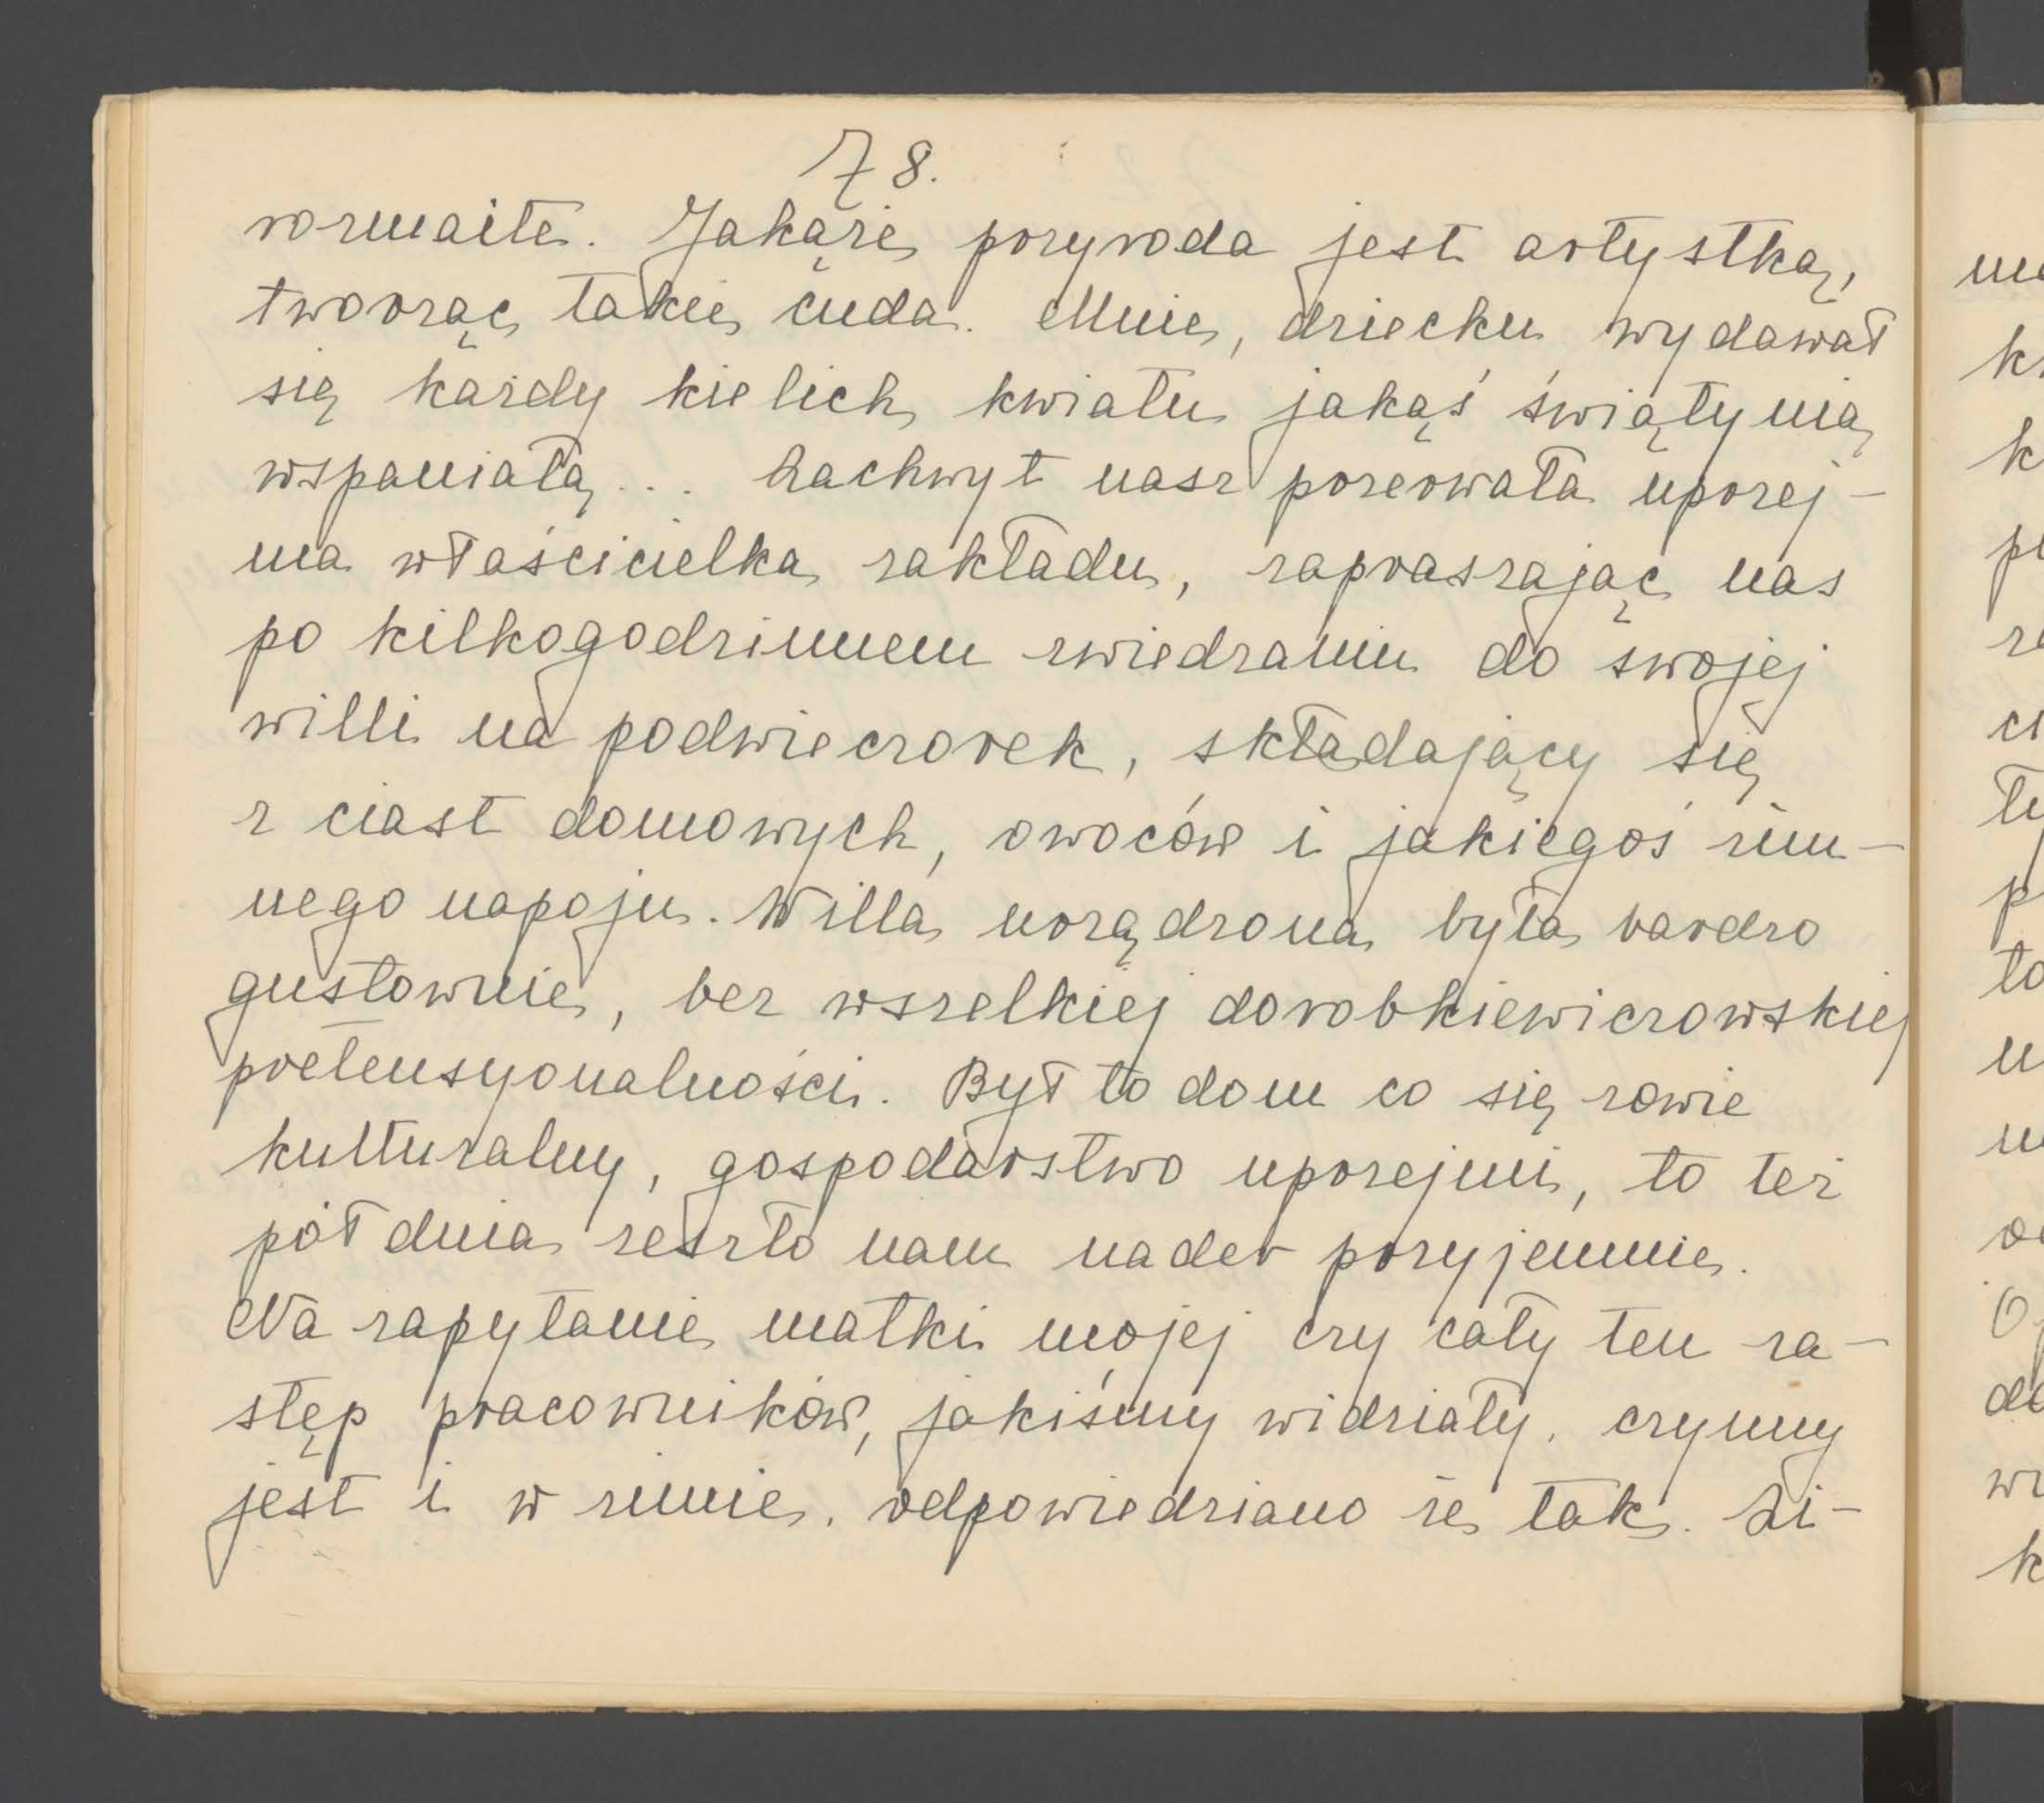 78.
rozmaite. Jakąże przyroda jest artystką,
tworząc takie cuda. Mnie, dziecku wydawał
się każdy kielich kwiatu jakąś świątynią
wspaniałą... Zachwyt nasz przerwała uprzej-
ma właścicielka zakładu, zapraszając nas
po kilkogodzinnem zwiedzaniu do swojej
willi na podwieczorek, składający się
z ciast domowych, owoców i jakiegoś zim-
nego napoju. Willa urządzona była bardzo
gustownie, bez wszelkiej dorobkiewiczowskiej
pretensyonalności. Był to dom co się zowie
kulturalny, gospodarstwo uprzejmi, to też
pół dnia zeszło nam nader przyjemnie.
Na zapytanie matki mojej czy cały ten za-
stęp pracowników, jakiśmy widziały, czynny
jest i w zimie, odpowiedziano że tak. Li-